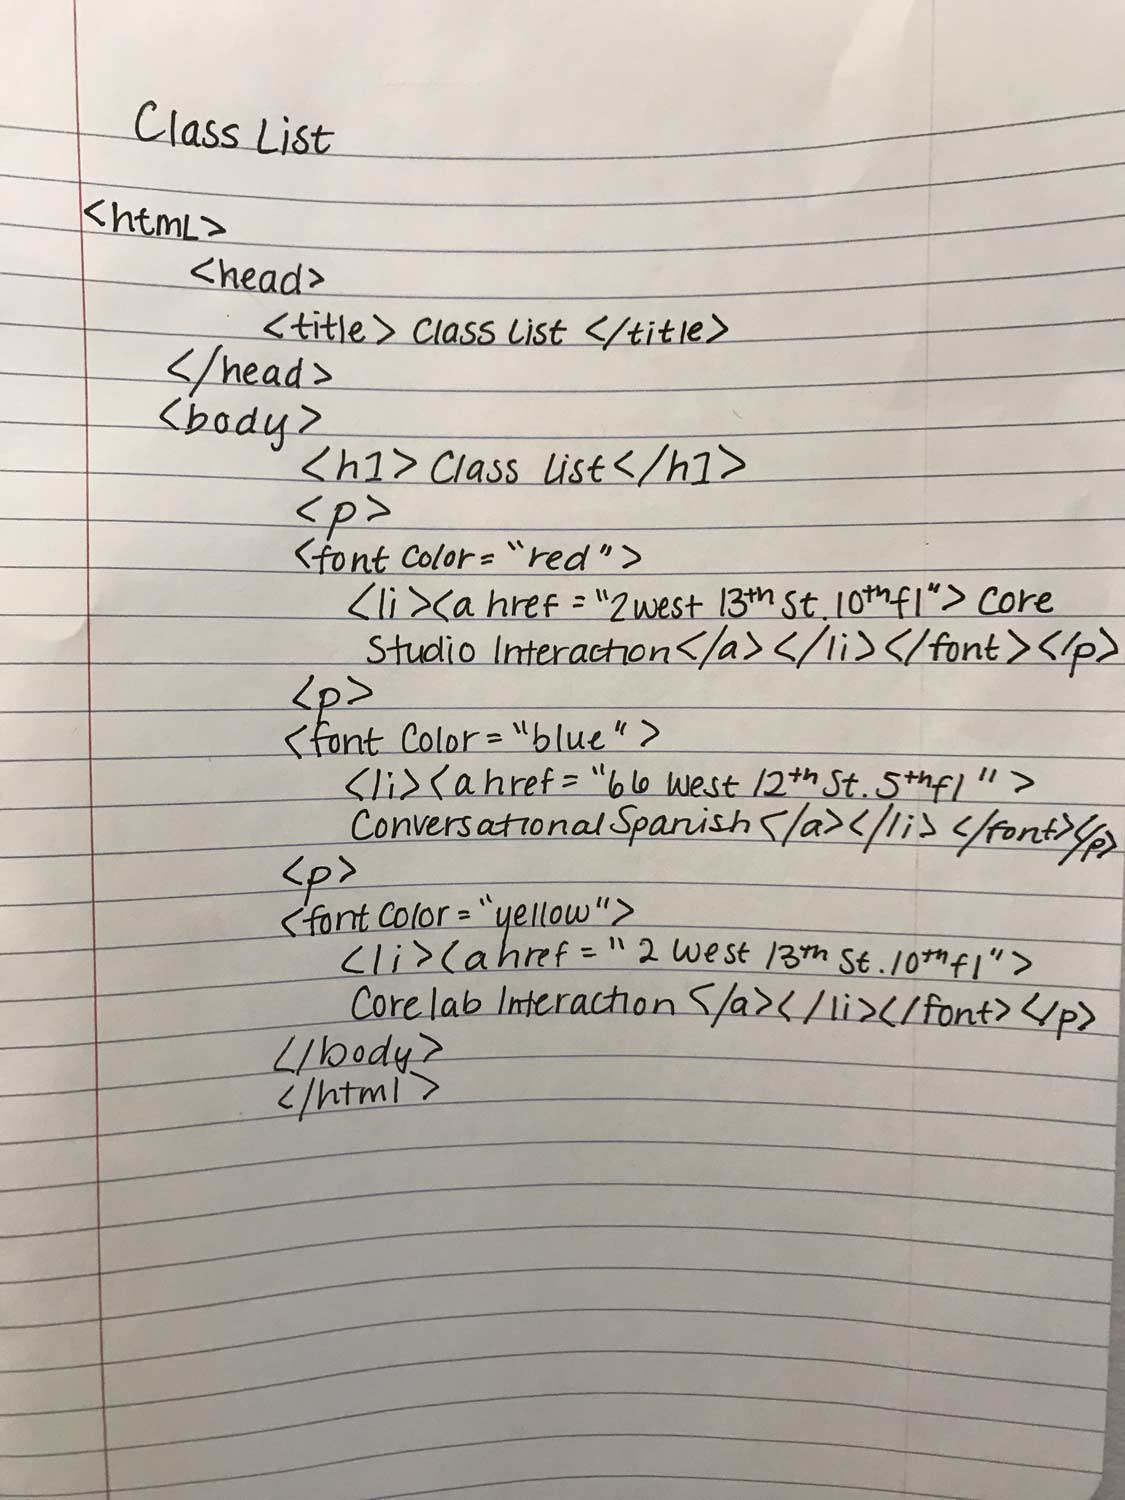 Class List
<html>
<head>
<title> Class List </title>
</head>
<body>
<h1> Class list</h1>
<p>
<font color = "red">
<li><a href = "2 west 13th St. 10th fl"> Core
Studio Interaction</a></li></font></p>
<p>
<font Color = "blue">
<li><a href = "66 West 12th St. 5th fl">
Conversational Spanish</a></li></font></p>
<p>
<font Color = "yellow">
<li><a href = "2 West 13th St. 10th fl">
Core lab Interaction </a></li></font></p>
</body>
</html>